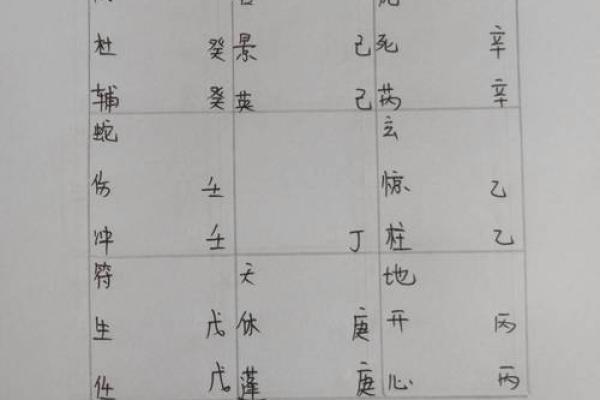 杜 癸 景 己 死 辛
辅 癸 英 己 芮 辛
蛇 玄
伤 壬 惊 乙
冲 壬 丁 柱 乙
符 天 地
生 戊 休 庚 开 丙
任 戊 蓬 庚 心 丙